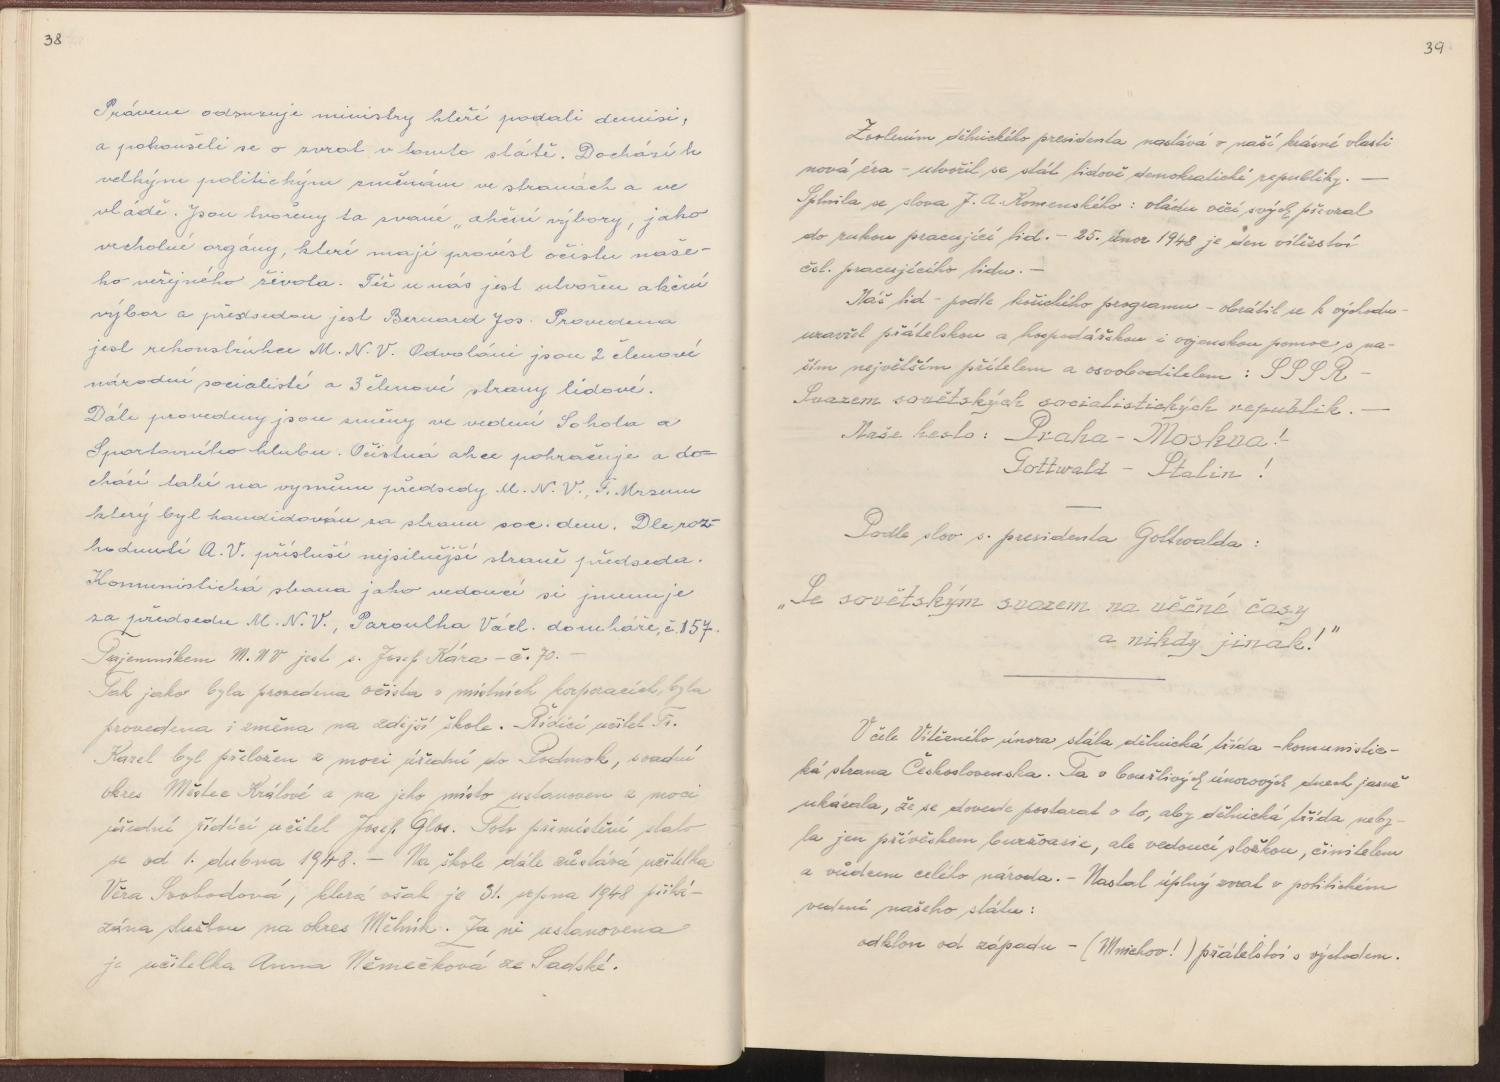 38
Právem odsuzuje ministry kteří podali demisi,
a pokoušeli se o zvrat v tomto státě. Dochází k
velkým politickým změnám ve stranách a ve
vládě. Jsou tvořeny ta zvané „akční výbory, jako
vrcholné orgány, které mají provést očistu naše-
ho veřejného života. Též u nás jest utvořen akční
výbor a předsedou jest Bernard Jos. Provedena
jest rekonstrukce M.N.V. Odvoláni jsou 2 členové
národní socialisté a 3 členové strany lidové.
Dále provedeny jsou změny ve vedení Sokola a
Sportovního klubu. Očistná akce pokračuje a do-
chází také na výměnu předsedy M.N.V., F. Mrzenu
který byl kandidován za stranu soc. dem. Dle roz-
hodnutí A.V. přísluší nejsilnější straně předseda.
Komunistická strana jako vedoucí si jmenuje
za předsedu M.N.V., Paroulka Václ. domkáře, č. 157.
Tajemníkem M.NV jest s. Josef Kára - č. 70. -
Tak jako byla provedena očista v místních korporacích, byla
provedena i změna na zdejší škole. - Řídící učitel Fr.
Karel byl přeložen z moci úřední do Podmok, soudní
okres Městec Králové a na jeho místo ustanoven z moci
úřední řídící učitel Josef Glos. Toto přemístění stalo
se od 1. dubna 1948. - Na škole dále zůstává učitelka
Věra Svobodová, která však je 31. srpna 1948 přiká-
zána službou na okres Mělník. Za ni ustanovena
je učitelka Anna Němečková ze Sadské.
39
Zvolením dělnického presidenta nastává v naší krásné vlasti
nová éra - utvořil se stát lidově demokratické republiky. -
Splnila se slova J. A. Komenského: vládu věcí svých převzal
do rukou pracující lid. - 25. únor 1948 je den vítězství
čsl. pracujícího lidu. -
Náš lid - podle košického programu - obrátil se k východu -
uzavřel přátelskou a hospodářskou i vojenskou pomoc s na-
ším největším přítelem a osvoboditelem: SSSR -
Svazem sovětských socialistických republik. -
Naše heslo: Praha - Moskva! -
Gottwald - Stalin!
Podle slov s. presidenta Gottwalda:
„Se sovětským svazem na věčné časy
a nikdy jinak!"
V čele Vítězného února stála dělnická třída - komunistic-
ká strana Československa. Ta v bouřlivých únorových dnech jasně
ukázala, že se dovede postarat o to, aby dělnická třída neby-
la jen přívěskem buržoasie, ale vedoucí složkou, činitelem
a vůdcem celého národa. - Nastal úplný zvrat v politickém
vedení našeho státu:
odklon od západu - (Mnichov!) přátelství s východem.